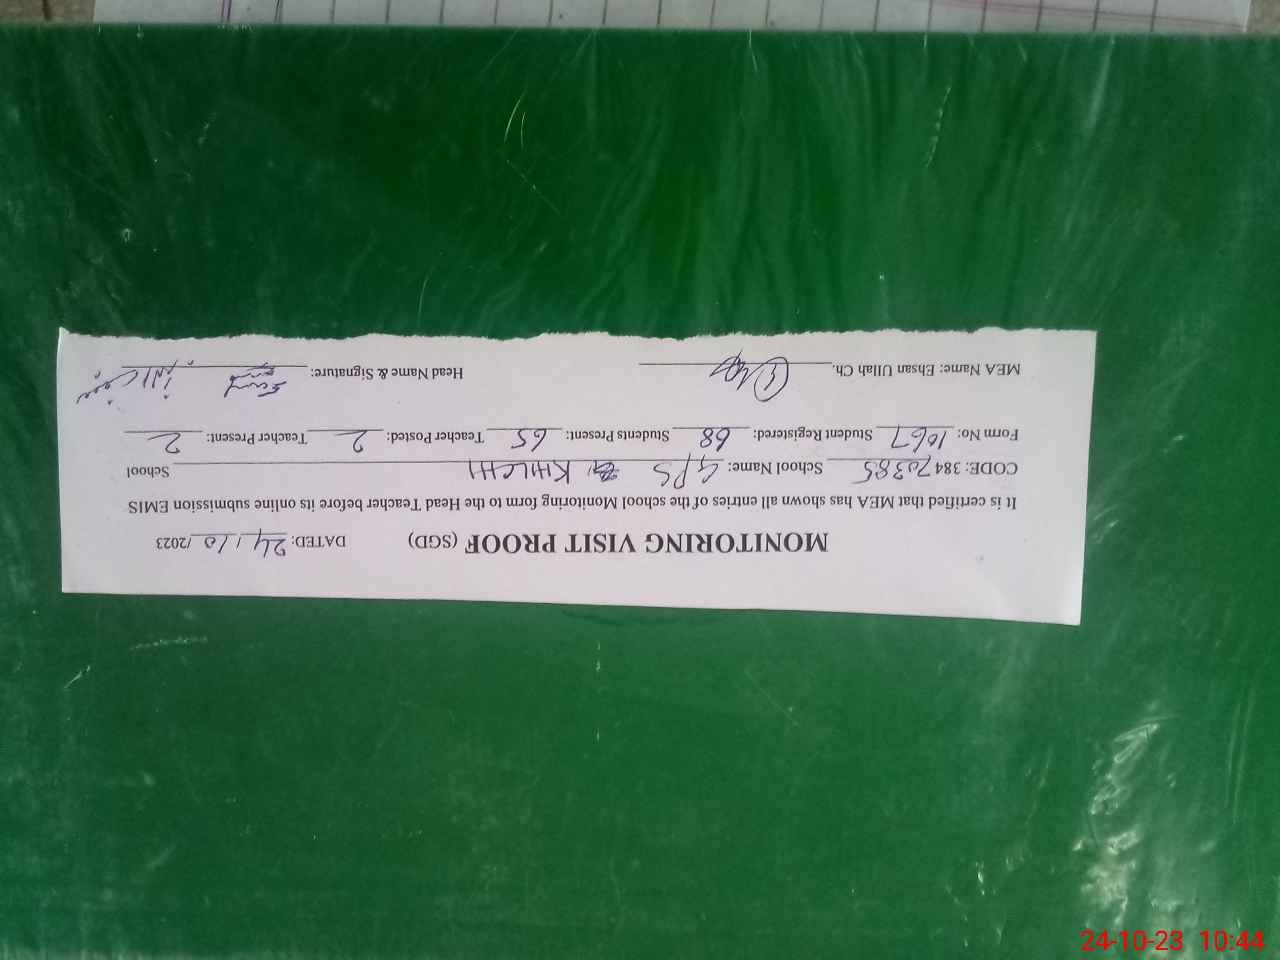 MONITORING VISIT PROOF (SGD) DATED: 24/10/2023
It is certified that MEA has shown all entries of the school Monitoring form to the Head Teacher before its online submission EMIS
CODE: 38470385 School Name: GPS KHILCHI School
Form No: 1067 Student Registered: 68 Students Present: 65 Teacher Posted: 2 Teacher Present: 2
MEA Name: Ehsan Ullah Ch. Head Name & Signature:
24-10-23 10:44